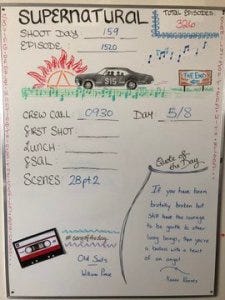 SUPERNATURAL
TOTAL EPISODES:
326
SHOOT DAY 159
EPISODE 1520
S15
THE END
CREW CALL 0930 DAY 5/8
FIRST SHOT
LUNCH
EST.
SCENES 28pt2
Quote of the Day
If you have been
brutally broken but
still have the courage
to be gentle to other
living beings, then you're
a badass with a heart
of an angel
Keanu Reeves
#songoftheday
Old Souls
William Prince